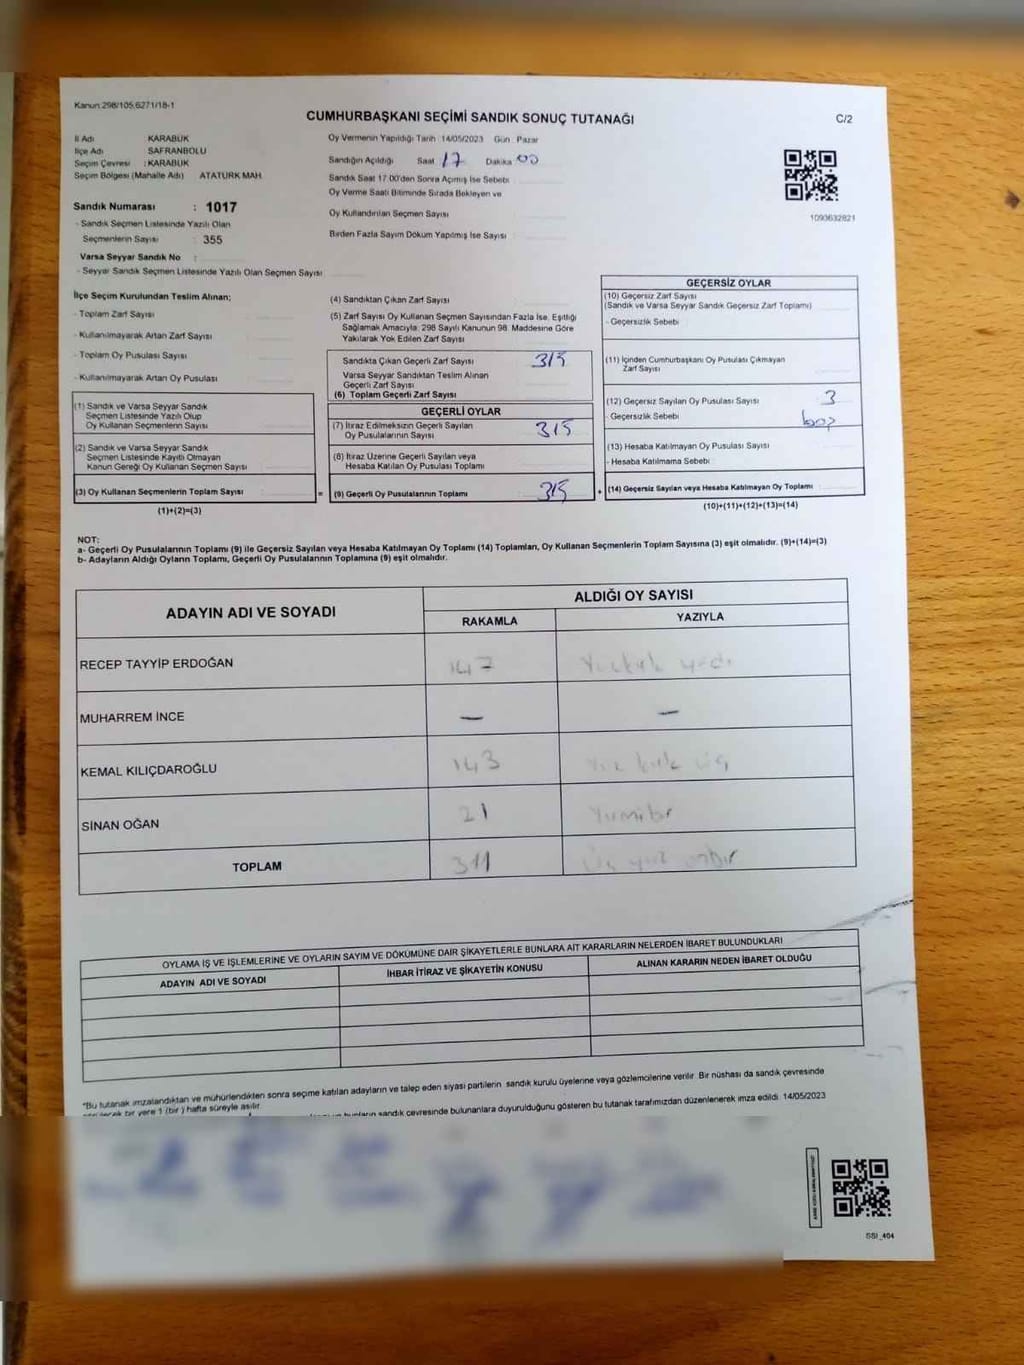 Kanun:298/105,6271/18-1
CUMHURBAŞKANI SEÇİMİ SANDIK SONUÇ TUTANAĞI
C/2
İl Adı KARABÜK
İlçe Adı SAFRANBOLU
Seçim Çevresi : KARABÜK
Seçim Bölgesi (Mahalle Adı) ATATÜRK MAH.
Sandık Numarası : 1017
- Sandık Seçmen Listesinde Yazılı Olan
Seçmenlerin Sayısı : 355
Varsa Seyyar Sandık No :
- Seyyar Sandık Seçmen Listesinde Yazılı Olan Seçmen Sayısı
Oy Vermenin Yapıldığı Tarih 14/05/2023 Gün Pazar
Sandığın Açıldığı Saat 17 Dakika 00
Sandık Saat 17.00'den Sonra Açımış İse Sebebi
Oy Verme Saati Bitiminde Sırada Bekleyen ve
Oy Kullandırılan Seçmen Sayısı
Birden Fazla Sayım Döküm Yapılmış İse Sayısı
1093632821
İlçe Seçim Kurulundan Teslim Alınan;
- Toplam Zarf Sayısı
- Kullanılmayarak Artan Zarf Sayısı
- Toplam Oy Pusulası Sayısı
- Kullanılmayarak Artan Oy Pusulası
(1) Sandık ve Varsa Seyyar Sandık
Seçmen Listesinde Yazılı Olup
Oy Kullanan Seçmenlerin Sayısı
(2) Sandık ve Varsa Seyyar Sandık
Seçmen Listesinde Kayıtlı Olmayan
Kanun Gereği Oy Kullanan Seçmen Sayısı
(3) Oy Kullanan Seçmenlerin Toplam Sayısı
(1)+(2)=(3)
(4) Sandıktan Çıkan Zarf Sayısı
(5) Zarf Sayısı Oy Kullanan Seçmen Sayısından Fazla İse, Eşitliği
Sağlamak Amacıyla, 298 Sayılı Kanunun 98. Maddesine Göre
Yakılarak Yok Edilen Zarf Sayısı
Sandıkta Çıkan Geçerli Zarf Sayısı 315
Varsa Seyyar Sandıktan Teslim Alınan
Geçerli Zarf Sayısı
(6) Toplam Geçerli Zarf Sayısı
GEÇERLİ OYLAR
(7) İtiraz Edilmeksizin Geçerli Sayılan
Oy Pusulalarının Sayısı 315
(8) İtiraz Üzerine Geçerli Sayılan veya
Hesaba Katılan Oy Pusulası Toplamı
= (9) Geçerli Oy Pusulalarının Toplamı 315 +
GEÇERSİZ OYLAR
(10) Geçersiz Zarf Sayısı
(Sandık ve Varsa Seyyar Sandık Geçersiz Zarf Toplamı)
- Geçersizlik Sebebi
(11) İçinden Cumhurbaşkanı Oy Pusulası Çıkmayan
Zarf Sayısı
(12) Geçersiz Sayılan Oy Pusulası Sayısı 3
- Geçersizlik Sebebi boş
(13) Hesaba Katılmayan Oy Pusulası Sayısı
- Hesaba Katılmama Sebebi
(14) Geçersiz Sayılan veya Hesaba Katılmayan Oy Toplamı
(10)+(11)+(12)+(13)=(14)
NOT:
a- Geçerli Oy Pusulalarının Toplamı (9) ile Geçersiz Sayılan veya Hesaba Katılmayan Oy Toplamı (14) Toplamları, Oy Kullanan Seçmenlerin Toplam Sayısına (3) eşit olmalıdır. (9)+(14)=(3)
b- Adayların Aldığı Oyların Toplamı, Geçerli Oy Pusulalarının Toplamına (9) eşit olmalıdır.
ADAYIN ADI VE SOYADI
ALDIĞI OY SAYISI
RAKAMLA YAZIYLA
RECEP TAYYİP ERDOĞAN 147 Yüzkırk yedi
MUHARREM İNCE — —
KEMAL KILIÇDAROĞLU 143 Yüz kırk üç
SİNAN OĞAN 21 Yirmibir
TOPLAM 311 Üç yüz onbir
OYLAMA İŞ VE İŞLEMLERİNE VE OYLARIN SAYIM VE DÖKÜMÜNE DAİR ŞİKAYETLERLE BUNLARA AİT KARARLARIN NELERDEN İBARET BULUNDUKLARI
ADAYIN ADI VE SOYADI İHBAR İTİRAZ VE ŞİKAYETİN KONUSU ALINAN KARARIN NEDEN İBARET OLDUĞU
*Bu tutanak imzalandıktan ve mühürlendikten sonra seçime katılan adayların ve talep eden siyasi partilerin sandık kurulu üyelerine veya gözlemcilerine verilir. Bir nüshası da sandık çevresinde
bir yere 1 (bir ) hafta süreyle asılır.
sandık çevresinde bulunanlara duyurulduğunu gösteren bu tutanak tarafımızdan düzenlenerek imza edildi. 14/05/2023
SSI_404